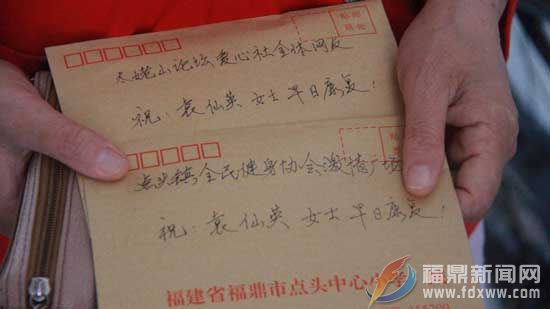 贴邮票处
太姥山论坛爱心社全体网友
祝：袁仙英 女士早日康复！
点头镇全民健身协会激情广场
祝：袁仙英 女士早日康复！
福建省福鼎市点头中心小学
福鼎新闻网
www.fdxww.com